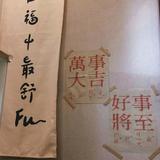 福中最舒Fu
萬事
大吉
好事
將至